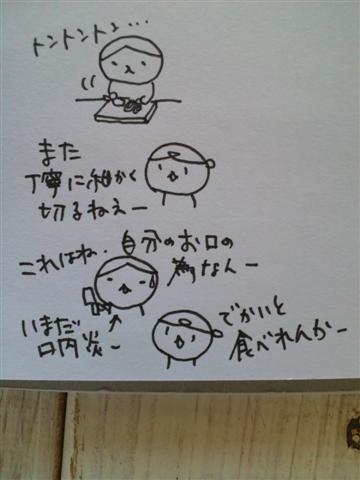 トントントン…
また
丁寧に細かく
切るねえー
これはね、自分のお口の
為なんー
いまだ
口内炎ー
でかいと
食べれんかー